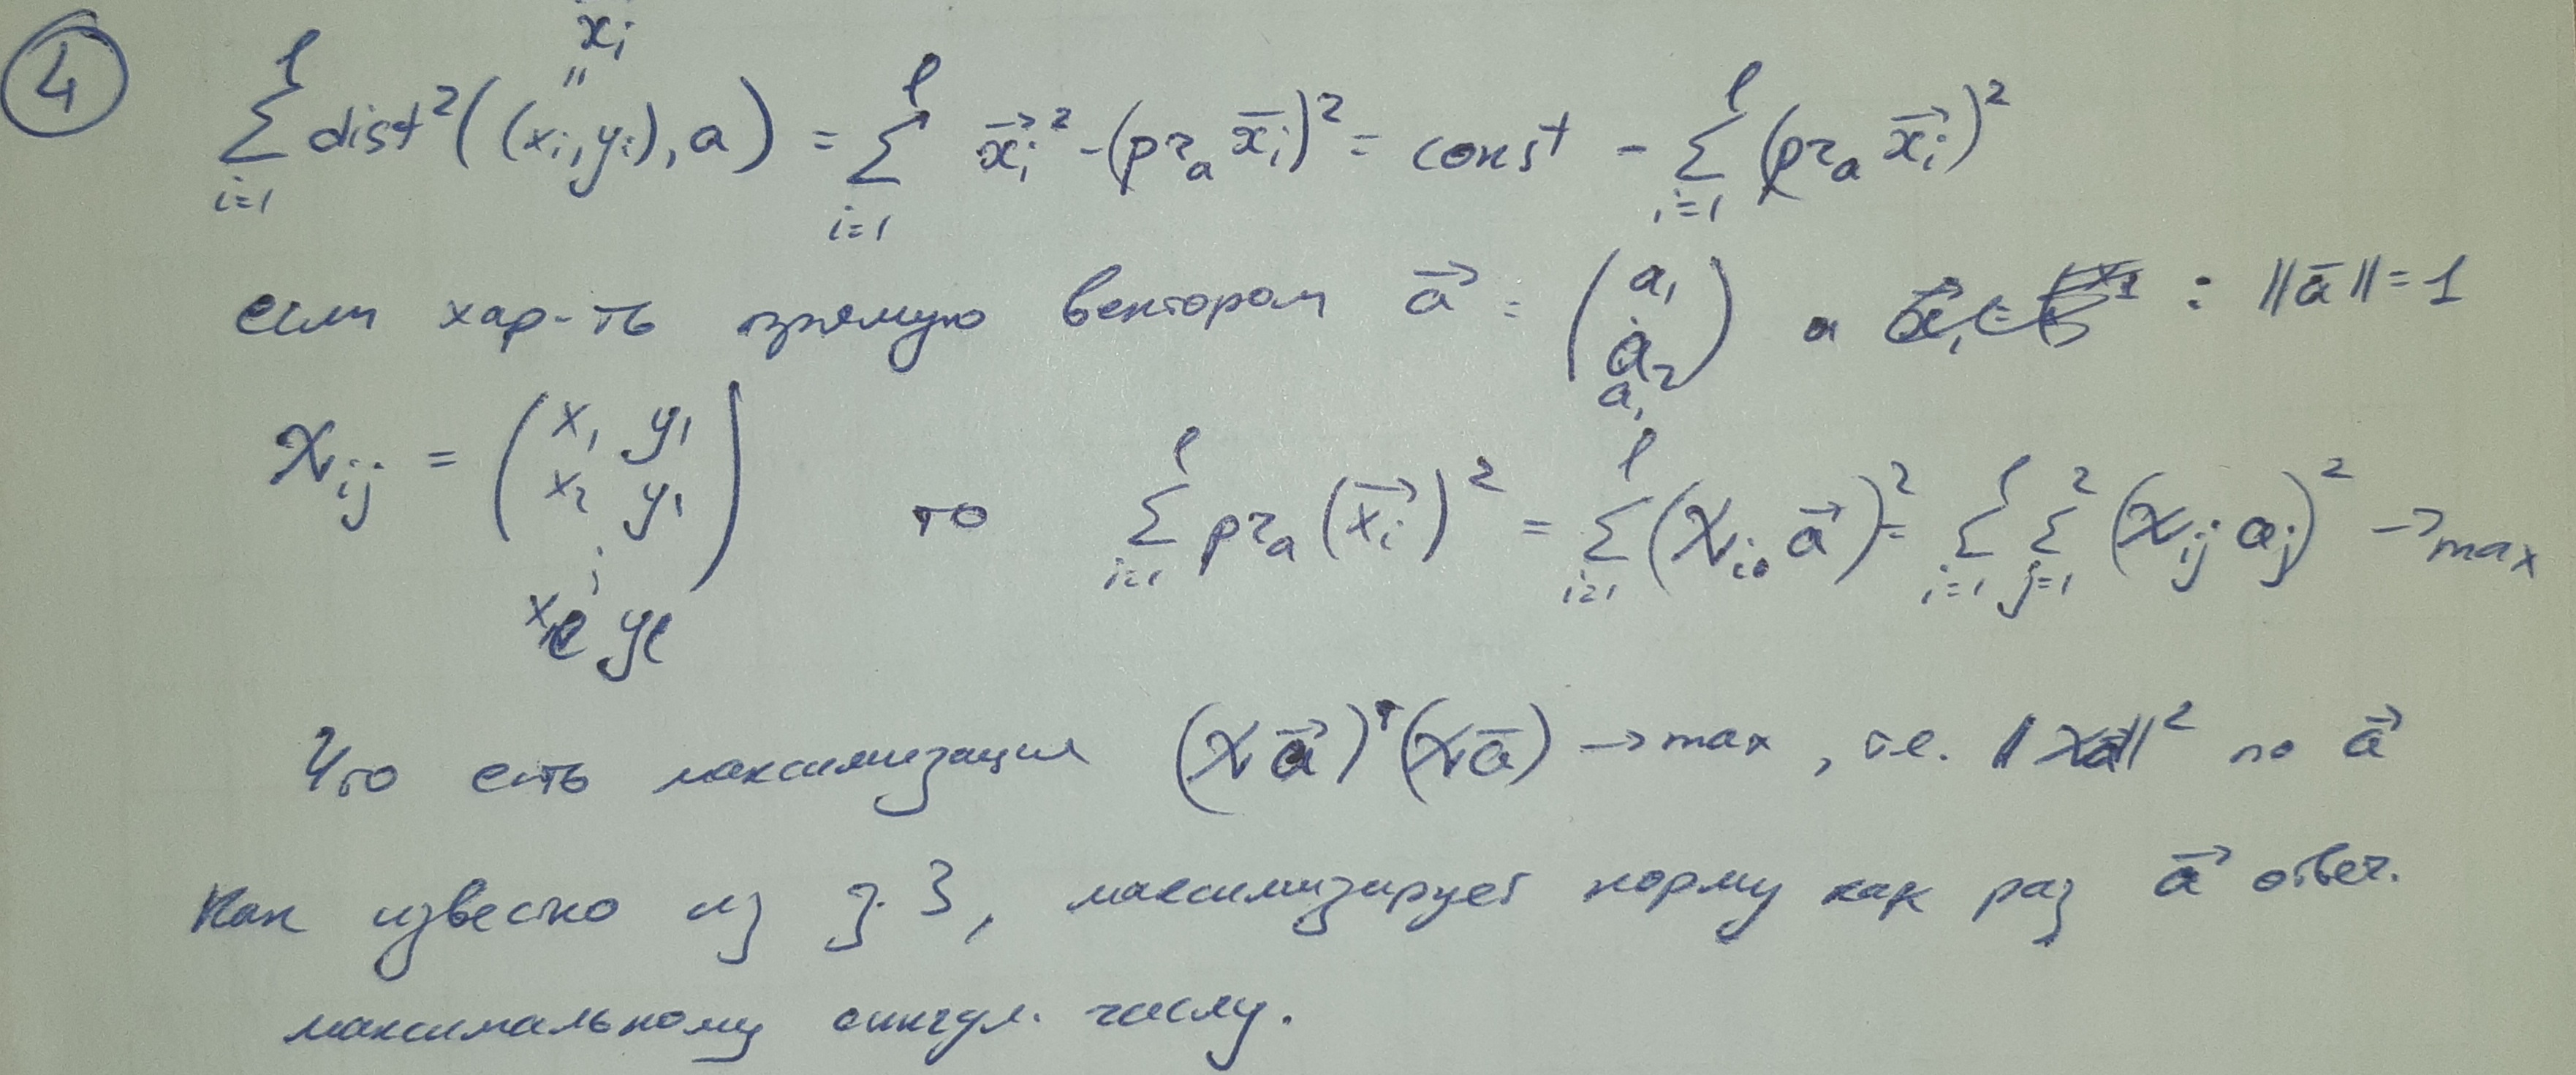 ④
x⃗ᵢ
"
∑ᵢ₌₁ˡ dist²((xᵢ, yᵢ), a) = ∑ᵢ₌₁ˡ x⃗ᵢ² - (prₐ x̄ᵢ)² = const - ∑ᵢ₌₁ˡ (prₐ x⃗ᵢ)²
если хар-ть прямую вектором a⃗ = (a₁ a₂) и : ||ā|| = 1
Xᵢⱼ = (x₁ y₁ x₂ y₁ ⋮ xₗ yₗ) то ∑ᵢ₌₁ˡ prₐ(x⃗ᵢ)² = ∑ᵢ₌₁ˡ (Xᵢ• a⃗)² = ∑ᵢ₌₁ˡ ∑ⱼ₌₁² (Xᵢⱼ aⱼ)² → max
Что есть максимизация (X a⃗)ᵀ(X ā) → max, т.е. ||Xa⃗||² по a⃗
Как известно из з. 3, максимизирует норму как раз a⃗ отвеч.
максимальному сингул. числу.